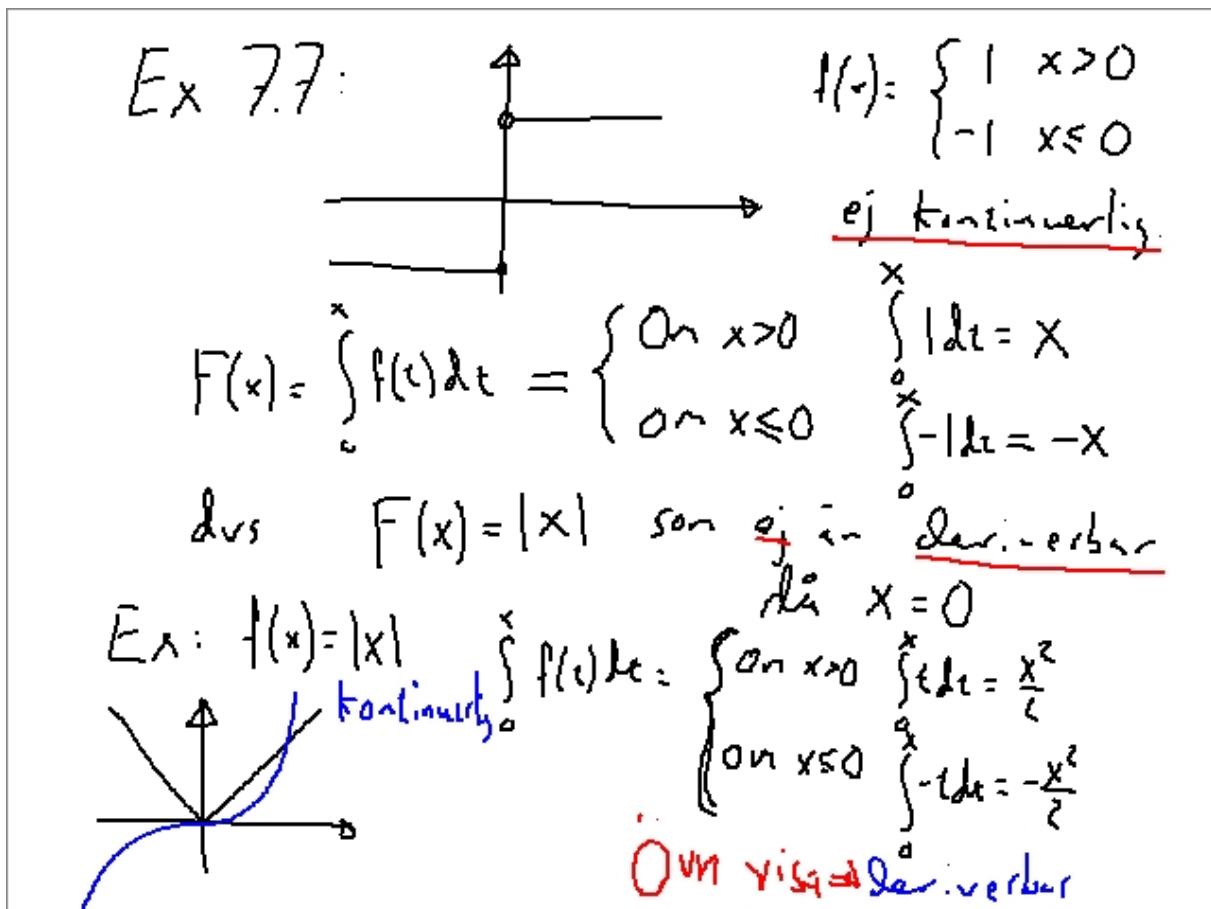 Ex 7.7:
f(x) = { 1 x>0
-1 x≤0
ej kontinuerlig
F(x) = ∫₀ˣ f(t)dt = { Om x>0 ∫₀ˣ 1dt = x
om x≤0 ∫₀ˣ -1dt = -x
dvs F(x) = |x| som ej är deriverbar
då x = 0
Ex: f(x) = |x| ∫₀ˣ f(t)dt = { om x>0 ∫₀ˣ tdt = x²/2
kontinuerlig
om x≤0 ∫₀ˣ -tdt = -x²/2
Övn visa deriverbar